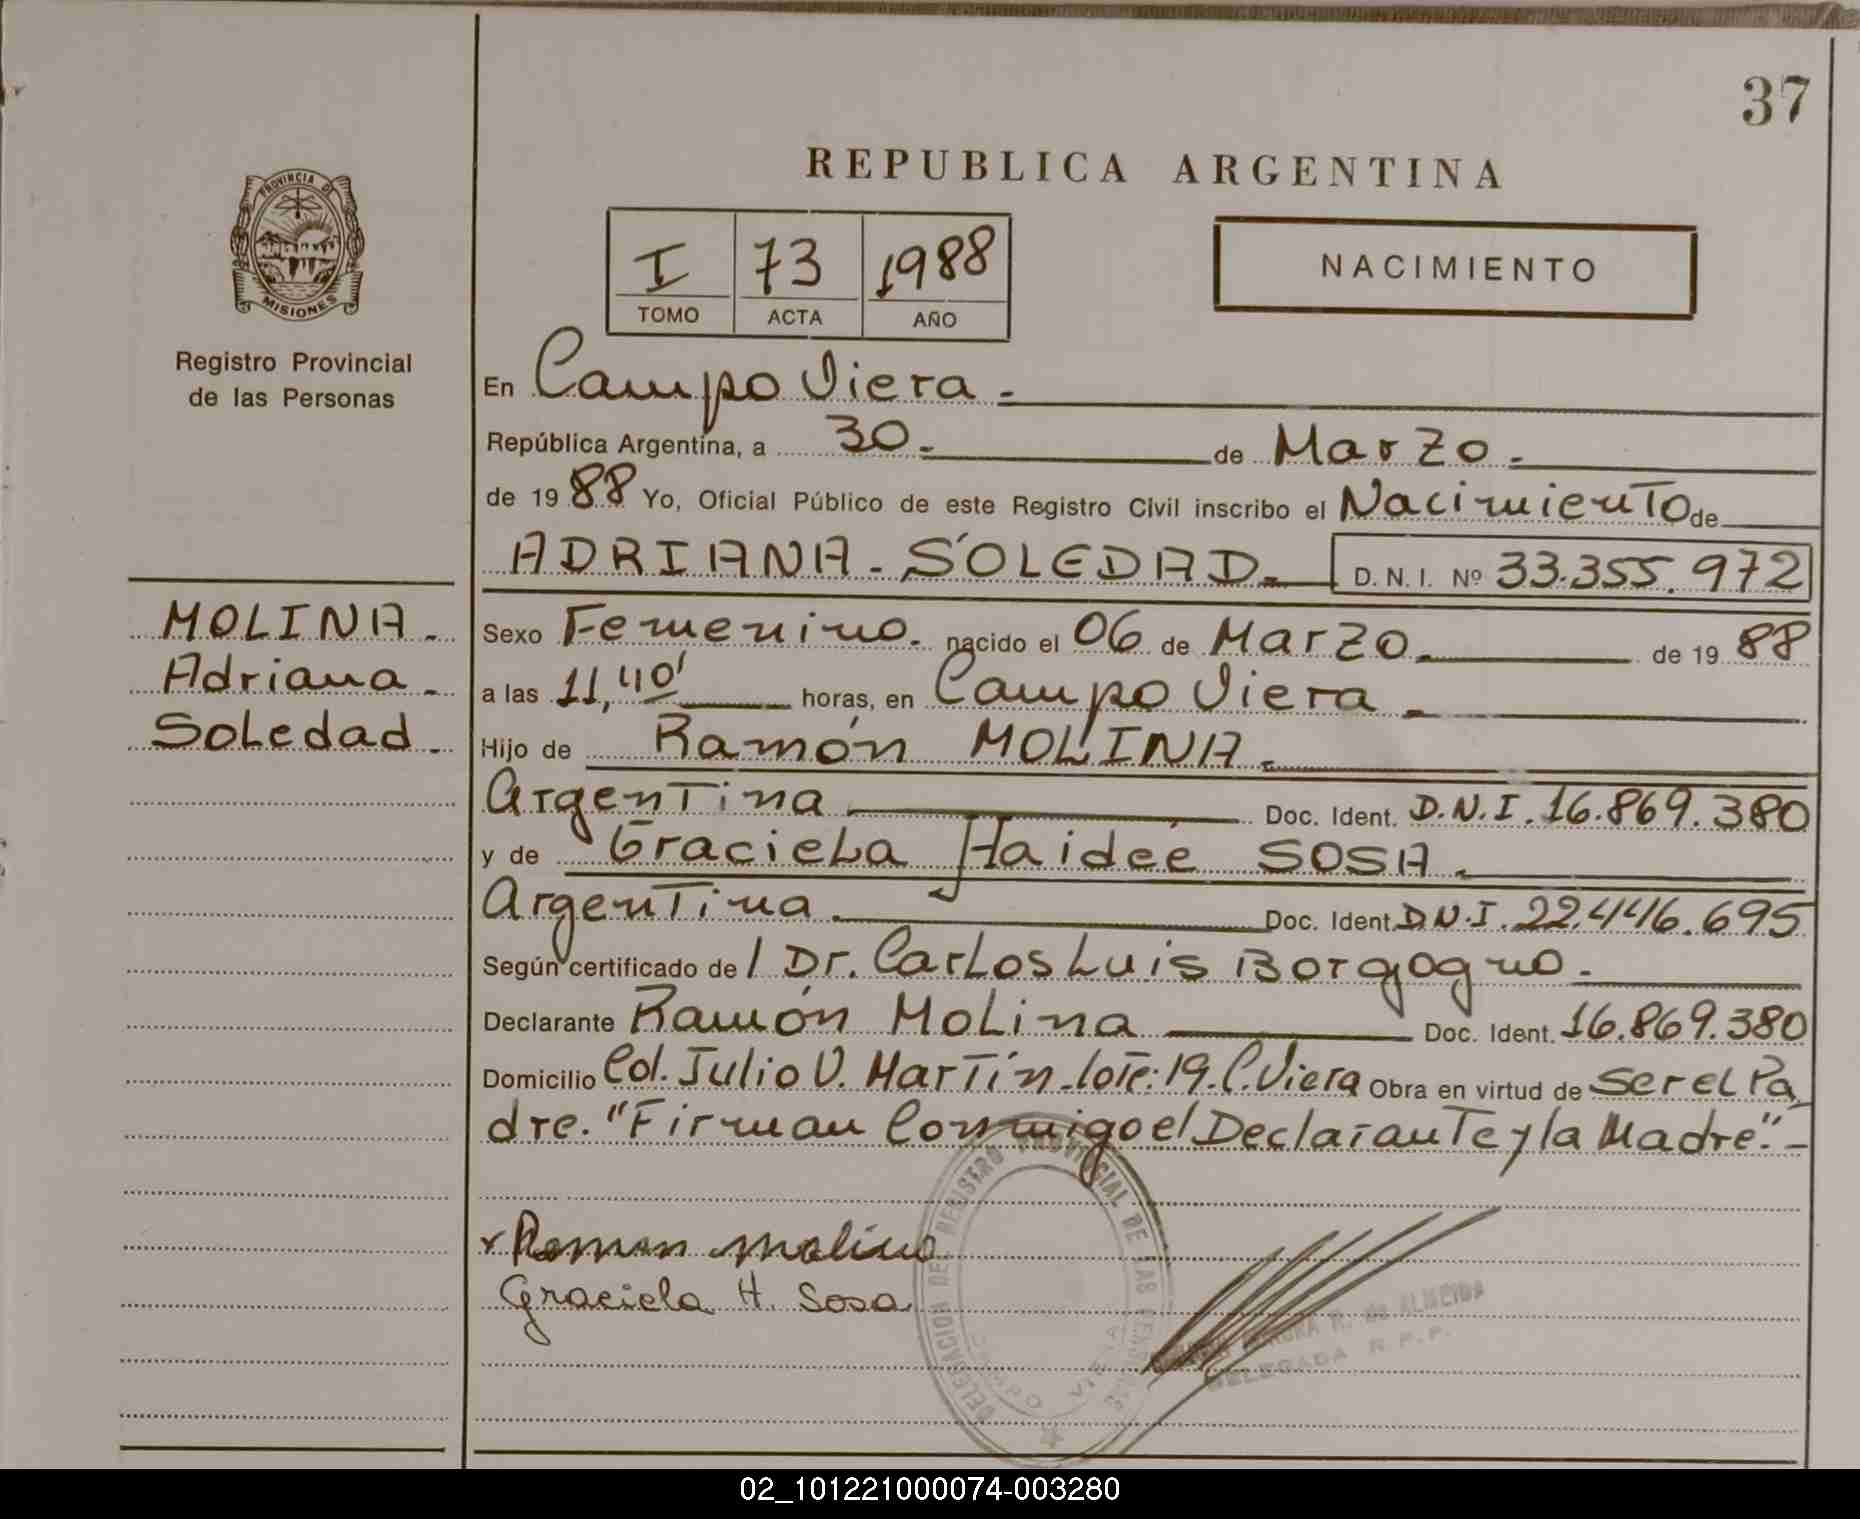 37
REPUBLICA ARGENTINA
PROVINCIA DE
MISIONES
Registro Provincial
de las Personas
I 73 1988
TOMO ACTA AÑO
NACIMIENTO
En Campo Viera.-
República Argentina, a 30.- de Marzo.-
de 1988 Yo, Oficial Público de este Registro Civil inscribo el Nacimiento de
ADRIANA-SOLEDAD.- D. N. I. Nº 33.355.972
MOLINA.-
Adriana.-
Soledad.-
Sexo Femenino. nacido el 06 de Marzo.- de 1988
a las 11,40' horas, en Campo Viera.-
Hijo de Ramón MOLINA.-
Argentina Doc. Ident. D.N.I. 16.869.380
y de Graciela Haideé SOSA.-
Argentina.- Doc. Ident. D.N.I. 22.446.695
Según certificado de / Dr. Carlos Luis Borgogno.-
Declarante Ramón Molina Doc. Ident. 16.869.380
Domicilio Col. Julio U. Martín-lote:19. C. Viera Obra en virtud de ser el Pa
dre. "Firman Conmigo el Declarante y la Madre".-
Ramon Molina
Graciela H. Sosa
DELEGACION DEL REGISTRO PROVINCIAL DE LAS PERSONAS
CAMPO VIERA
R. de ALMEIDA
DELEGADA R.P.P.
02_101221000074-003280